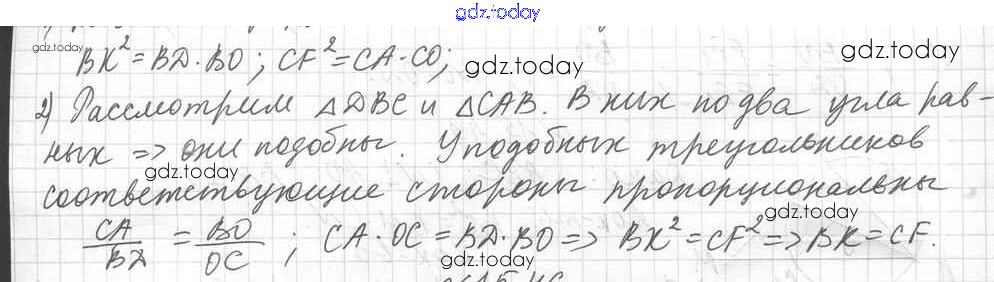 gdz.today
BK² = BД · BO; CF² = CA · CO;
gdz.today
gdz.today
2) Рассмотрим △ДBC и △CAB. В них по два угла рав-
ных => они подобны. У подобных треугольников
gdz.today
соответствующие стороны пропорциональны
gdz.today
CA/BД = BO/OC; CA · OC = BД · BO => BK² = CF² => BK = CF.
gdz.today